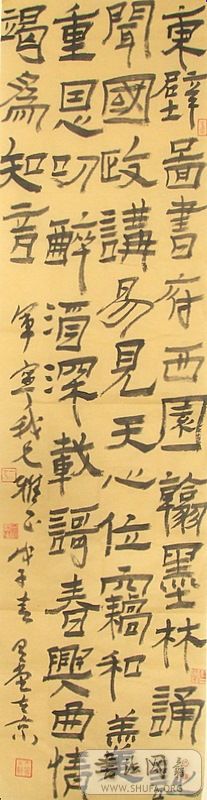 東壁圖書府西園翰墨林誦
聞國政講易見天心位竊和羹
重恩叨醉酒深載謌春興曲情
竭為知音
我兄雅正戊子春
WWW.SHUFA.ORG